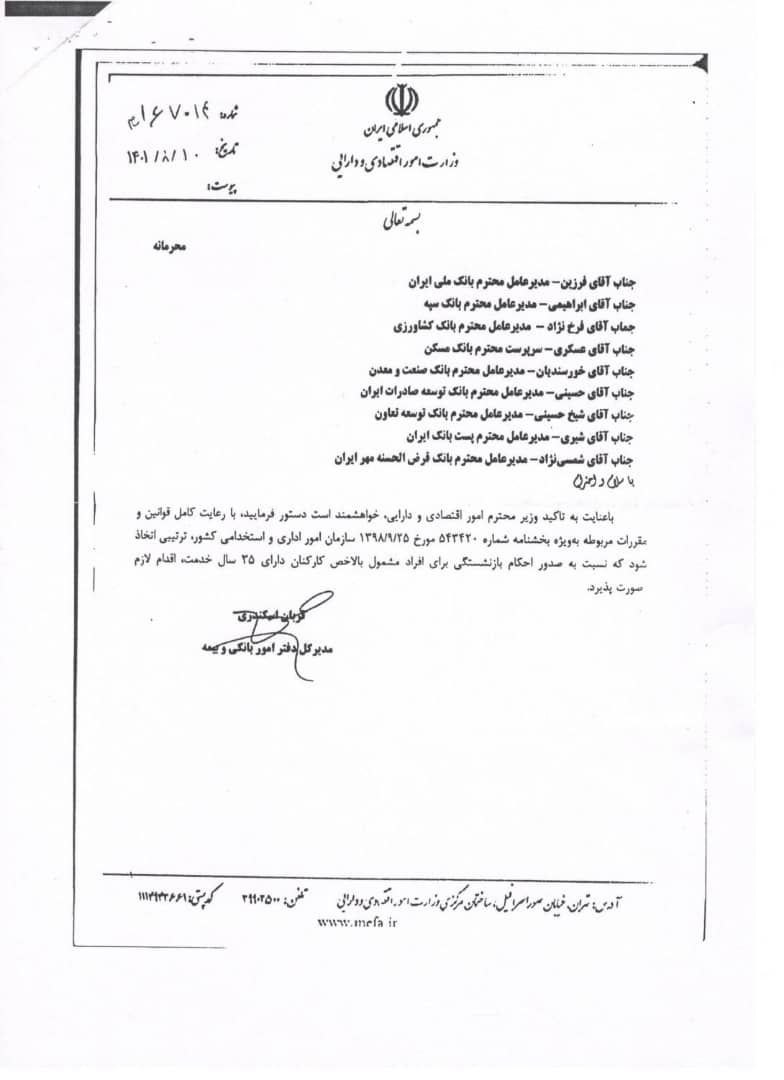 جمهوری اسلامی ایران
وزارت امور اقتصادی و دارایی
شماره: ۱۶۷۰۱۴/م
تاریخ: ۱۴۰۱/۸/۱۰
پیوست:
بسمه تعالی
محرمانه
جناب آقای فرزین- مدیرعامل محترم بانک ملی ایران
جناب آقای ابراهیمی- مدیرعامل محترم بانک سپه
جماب آقای فرخ نژاد - مدیرعامل محترم بانک کشاورزی
جناب آقای عسکری- سرپرست محترم بانک مسکن
جناب آقای خورسندیان- مدیرعامل محترم بانک صنعت و معدن
جناب آقای حسینی- مدیرعامل محترم بانک توسعه صادرات ایران
جناب آقای شیخ حسینی- مدیرعامل محترم بانک توسعه تعاون
جناب آقای شیری- مدیرعامل محترم پست بانک ایران
جناب آقای شمسی‌نژاد- مدیرعامل محترم بانک قرض الحسنه مهر ایران
با سلام و احترام
باعنایت به تاکید وزیر محترم امور اقتصادی و دارایی، خواهشمند است دستور فرمایید، با رعایت کامل قوانین و
مقررات مربوطه به‌ویژه بخشنامه شماره ۵۴۳۴۲۰ مورخ ۱۳۹۸/۹/۲۵ سازمان امور اداری و استخدامی کشور، ترتیبی اتخاذ
شود که نسبت به صدور احکام بازنشستگی برای افراد مشمول بالاخص کارکنان دارای ۳۵ سال خدمت، اقدام لازم
صورت پذیرد.
اسکندری
مدیرکل دفتر امور بانکی و بیمه
آدرس: تهران، خیابان صوراسرافیل، ساختمان مرکزی وزارت امور اقتصادی و دارایی تلفن: ۳۹۹۰۲۵۰۰ کدپستی: ۱۱۱۴۹۴۳۶۶۱
www.mefa.ir